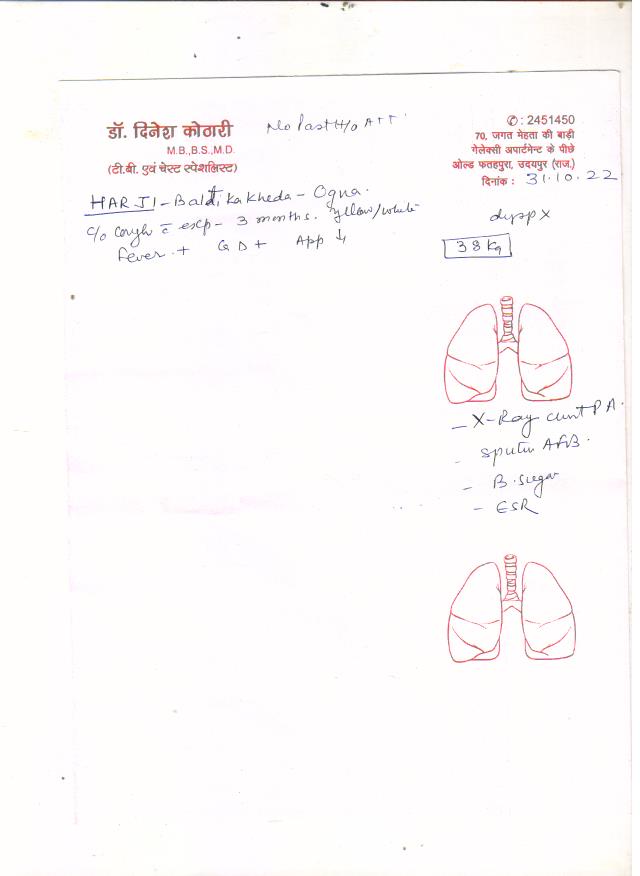 डॉ. दिनेश कोठारी
M.B.,B.S.,M.D.
(टी.बी. एवं चेस्ट स्पेशलिस्ट)
No Past H/o ATT
✆ : 2451450
70, जगत मेहता की बाड़ी
गेलेक्सी अपार्टमेन्ट के पीछे
ओल्ड फतहपुरा, उदयपुर (राज.)
दिनांक : 31.10.22
HARJI - Baldi ka kheda - Ogna.
c/o cough c̄ exp - 3 months. yellow/white
fever + GD + App ↓
dysp x
38 Kg
- X-Ray chest PA.
- Sputum AFB.
- B. Sugar
- ESR